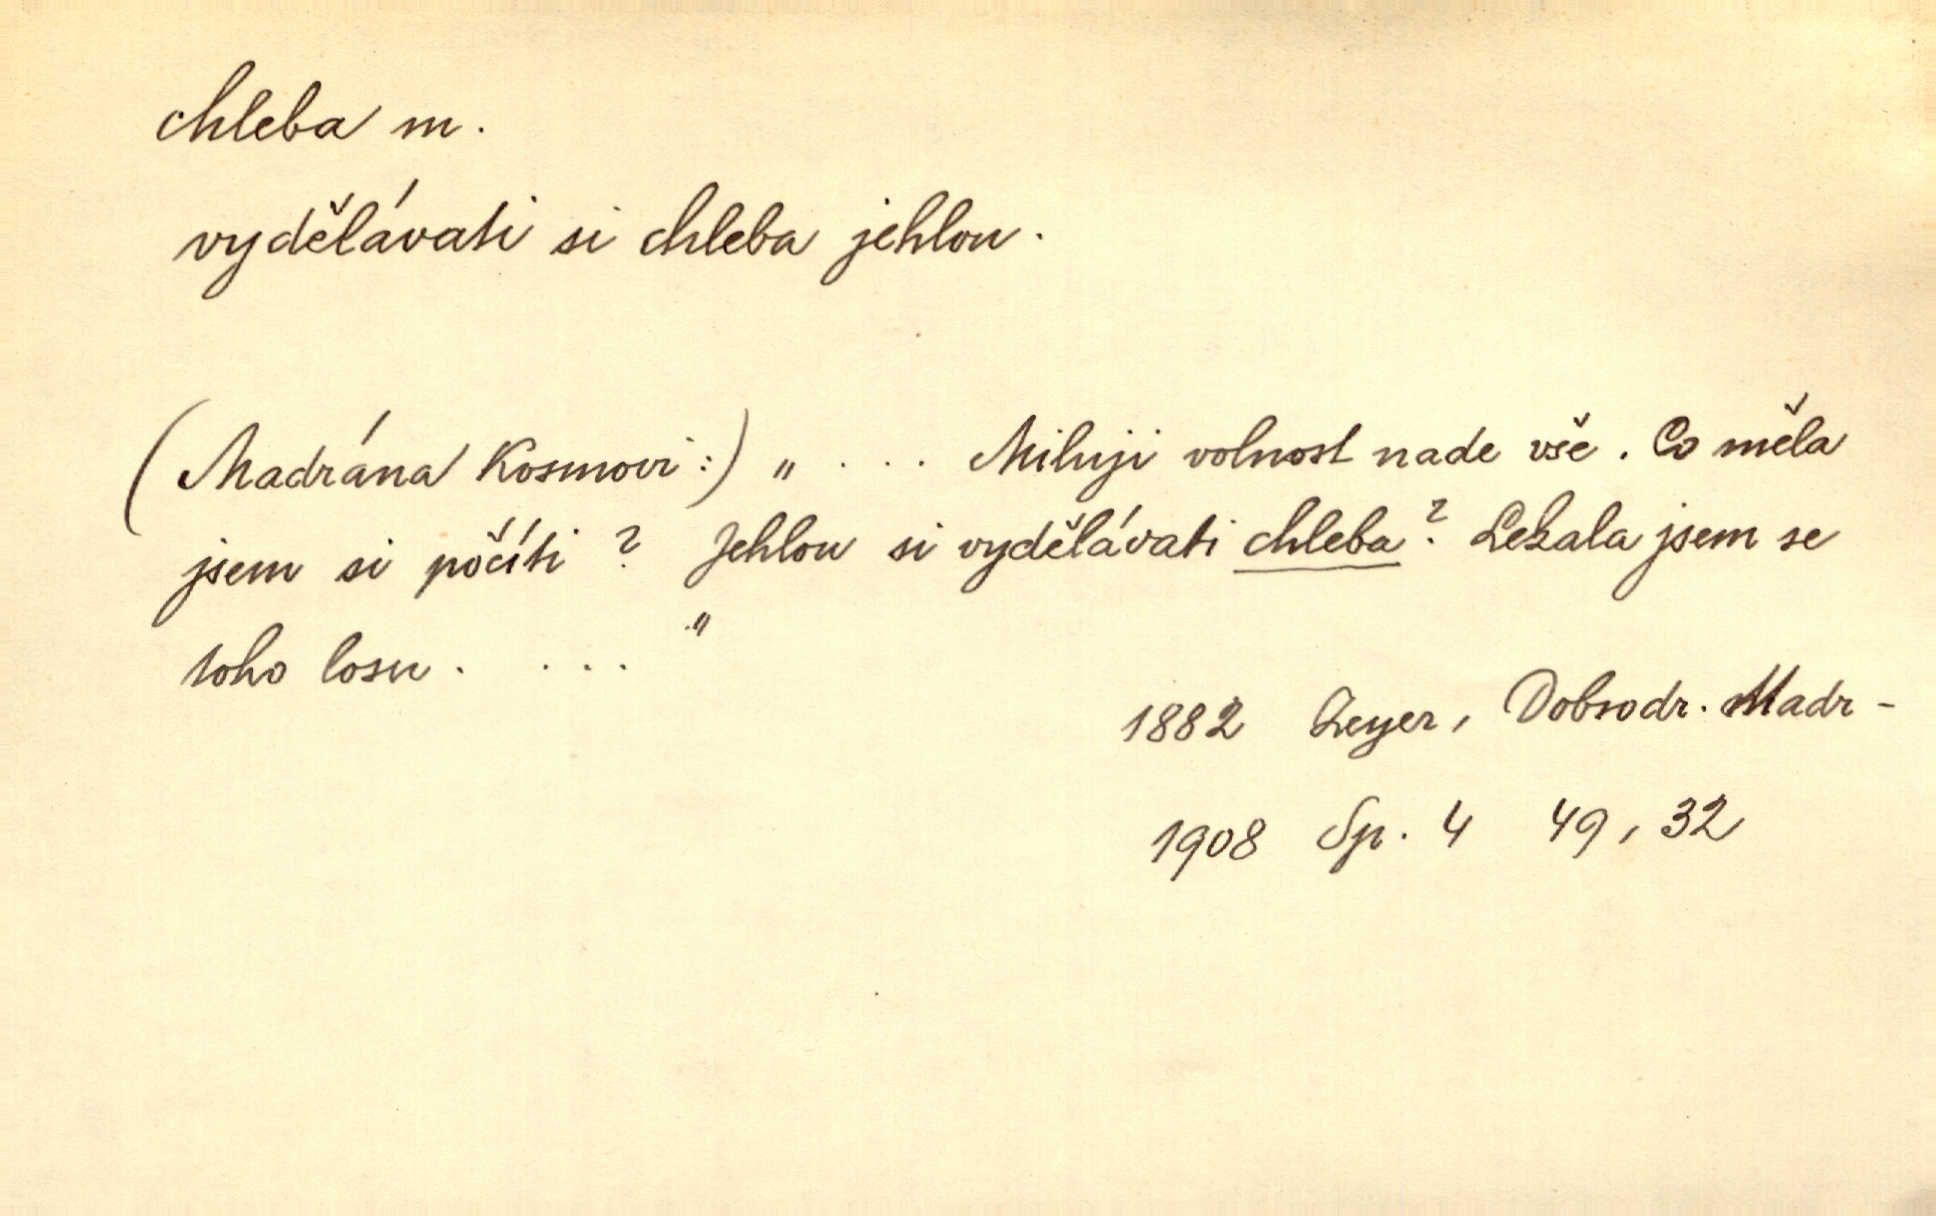 chleba m.
vydělávati si chleba jehlou.
(Madrána Kosmovi:) „ . . . Miluji volnost nade vše. Co měla
jsem si počíti? Jehlou si vydělávati chleba? Lekala jsem se
toho losu. . . . "
1882 Zeyer, Dobrodr. Madr-
1908 Sp. 4 49, 32